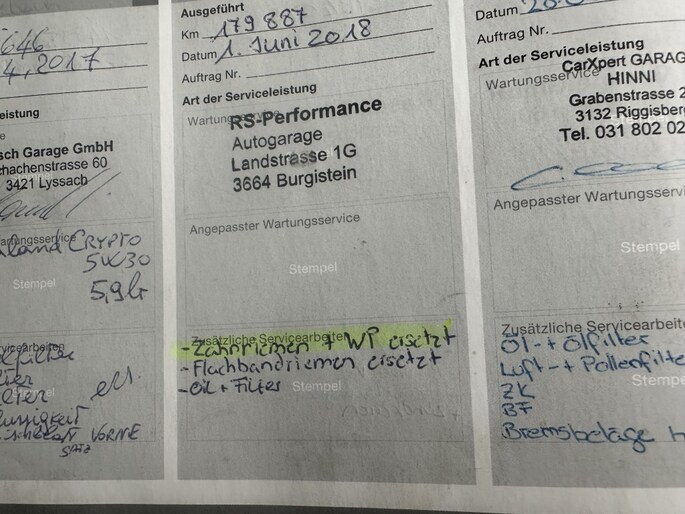 646
4,2017
eistung
sch Garage GmbH
hachenstrasse 60
3421 Lyssach
artungsservice
land CRYPTO
5W30
Stempel
5,9lr
vicearbeiten
VORNE
SATZ
Ausgeführt
Km 179 887
Datum 1. Juni 2018
Auftrag Nr.
Art der Serviceleistung
Wartungsservice
RS-Performance
Autogarage
Landstrasse 1G
3664 Burgistein
Angepasster Wartungsservice
Stempel
Zusätzliche Servicearbeiten
- Zahnriemen + WP eisetzt
- Flachbandriemen eisetzt
- Oil + Filter
Stempel
Datum
Auftrag Nr.
Art der Serviceleistung
CarXpert GARAG
Wartungsservice
HINNI
Grabenstrasse 2
3132 Riggisberg
Tel. 031 802 02
Angepasster Wartungsservice
Stempel
Zusätzliche Servicearbeite
Öl- + Ölfilter
Luft- + Pollenfilte
Stempel
ZK
BF
Bremsbeläge h